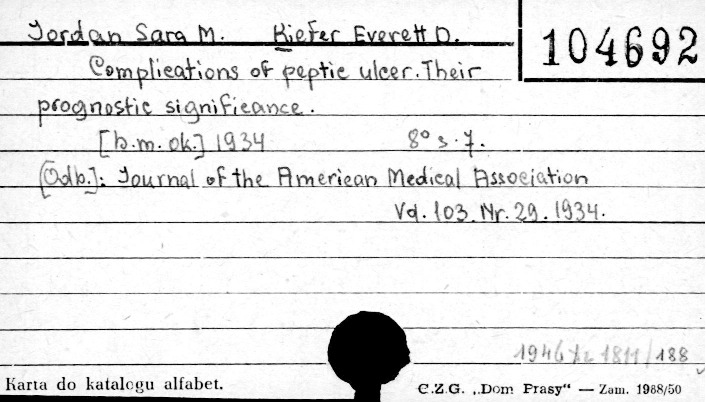 Jordan Sara M. Kiefer Everett D.
104692
Complications of peptic ulcer. Their
prognostic significance.
[b.m. ok.] 1934 8° s. 7.
[Odb.]: Journal of the American Medical Association
Vol. 103. Nr. 29. 1934.
1946 1811/188
Karta do katalogu alfabet.
C.Z.G. „Dom Prasy" — Zam. 1988/50